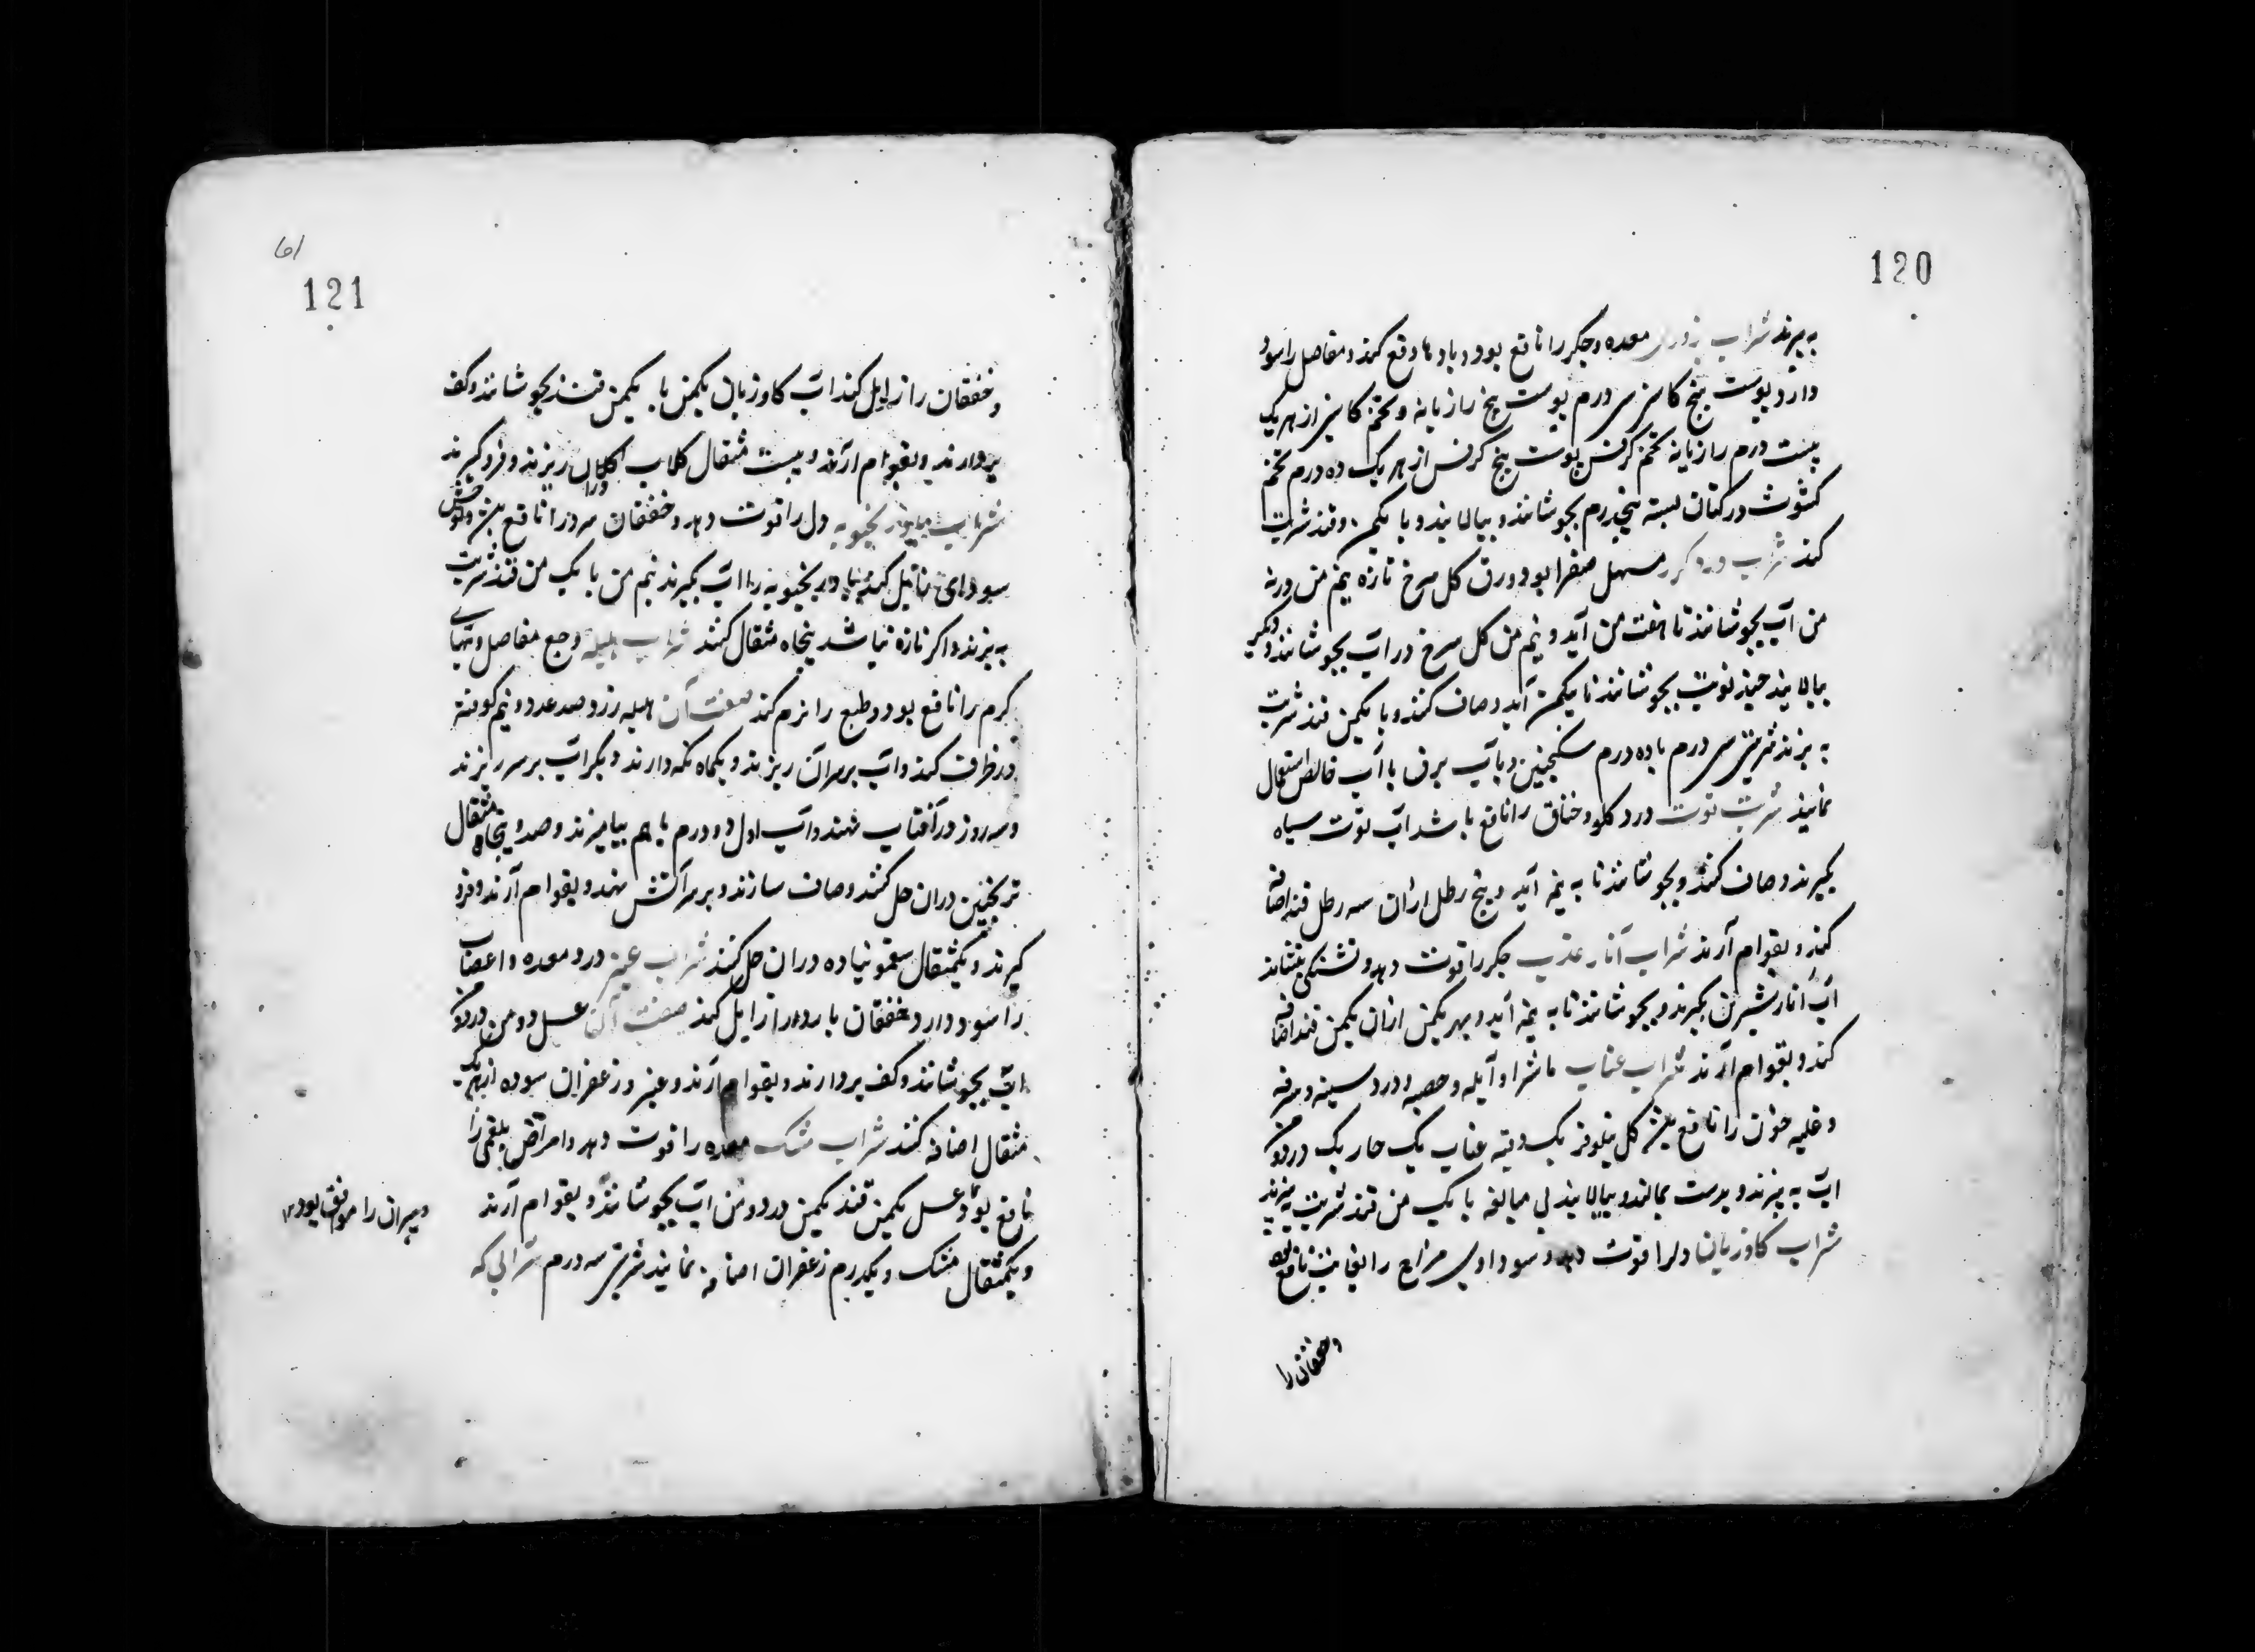 120
به پزند شراب بزوری معده و جکر را نافع بود و بادها دفع کند و مفاصل را سود
دارد پوست بیخ کاسنی سی درم پوست بیخ رازیانه و تخم کاسنی از هر یک
بیست درم رازیانه تخم کرفس پوست بیخ کرفس از هر یک ده درم تخم
کشوث در کتان بسته پنجدرم بجوشانند و بپالایند و با یکمن قند شربت
کند شراب ورد مکرر مسهل صفرا بود ورق کل سرخ تازه نیم من در نه
من آب بجوشانند تا هفت من آید و نیم من کل سرخ در آب بجوشانند و دیکر
بپالایند چند نوبت بجوشانند تا یکمن آید و صاف کنند و با یکمن قند شربت
به پزند شربتی سی درم با ده درم سکنجبین و بآب برف یا آب خالص استعمال
نمایند شربت توت درد کلو و خناق را نافع باشد آب توت سیاه
بکیرند و صاف کنند و بجوشانند تا به نیمه آید و پنج رطل ازان سه رطل قند اضافه
کنند و بقوام آرند شراب انار عذب جکر را قوت دهد و تشنکی بنشاند
آب انار شیرین بکیرند و بجوشانند تا به نیمه آید و بهر یکمن ازان یکمن قند اضافه
کنند و بقوام آرند شراب عناب ماشرا و آبله و حصبه و درد سینه و سرفه
و غلبه خون را نافع باشد کل نیلوفر یک وقیه عناب یک چاریک در دو من
آب به پزند و بدست بمالند و بپالایند بی مبالغه با یک من قند شربت به پزند
شراب کاوزبان دلرا قوت دهد و سوداوی مزاج را بغایت نافع بود
و خفقان را
121
و خفقان را زایل کند آب کاوزبان یکمن با یکمن قند بجوشانند و کف
بردارند و بقوام آرند و بیست مثقال کلاب دران ریزند و فرو کیرند
شراب بادرنجبویه دل را قوت دهد و خفقان سرد را نافع باشد و توحش
سوداوی زایل کند بادرنجبویه را آب بکیرند نیم من با یک من قند شربت
به پزند و اکر تازه نباشد پنجاه مثقال کنند شراب هلیله وجع مفاصل و تبهای
کرم را نافع بود و طبع را نرم کند صفت آن هلیله زرد صد عدد و نیم کوفته
در ظرف کنند و آب بر سر آن ریزند و یکماه نکه دارند و دیکر آب بر سر ریزند
و سه روز در آفتاب نهند و آب اول و دوم را با هم بیامیزند و صد و پنجاه مثقال
ترنجبین دران حل کنند و صاف سازند و بر سر آتش نهند و بقوام آرند و فرو
کیرند و یکمثقال سقمونیا ده دران حل کنند شراب عنبر درد معده و اعصاب
را سود دارد و خفقان بارد را زایل کند صفت آن عسل دو من در دو من
آب بجوشانند و کف بردارند و بقوام آرند و عنبر و زعفران سوده از هر یک
مثقال اضافه کنند شراب مشک معده را قوت دهد و امراض بلغمی را
نافع بود عسل یکمن قند یکمن در دو من آب بجوشانند و بقوام آرند
و یکمثقال مشک و یکدرم زعفران اضافه نمایند شربتی سه درم شرابی که
و پیران را موافق بود